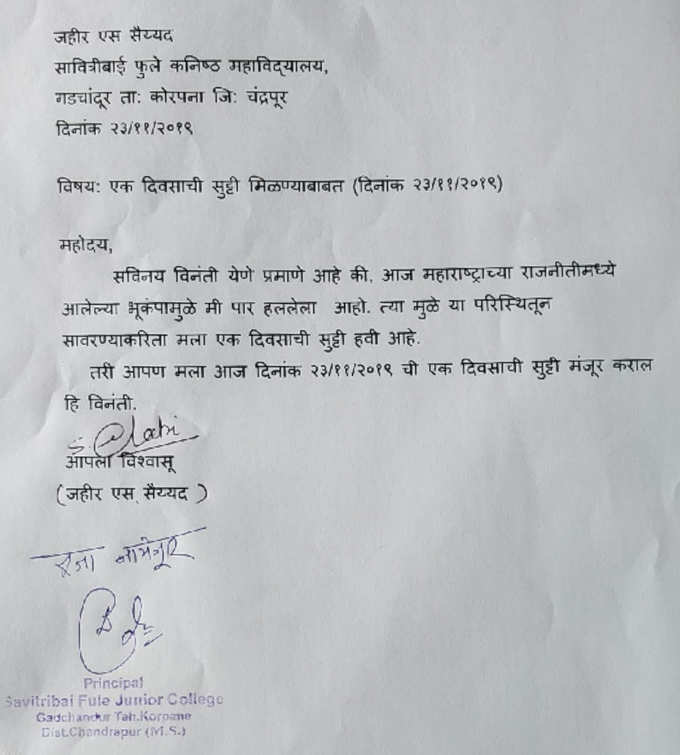 जहीर एस सैय्यद
सावित्रीबाई फुले कनिष्ठ महाविद्यालय,
गडचांदूर ता: कोरपना जि: चंद्रपूर
दिनांक २३/११/२०१९
विषय: एक दिवसाची सुट्टी मिळण्याबाबत (दिनांक २३/११/२०१९)
महोदय,
सविनय विनंती येणे प्रमाणे आहे की, आज महाराष्ट्राच्या राजनीतीमध्ये
आलेल्या भूकंपामुळे मी पार हललेला आहो. त्या मुळे या परिस्थितून
सावरण्याकरिता मला एक दिवसाची सुट्टी हवी आहे.
तरी आपण मला आज दिनांक २३/११/२०१९ ची एक दिवसाची सुट्टी मंजूर कराल
हि विनंती.
आपला विश्वासू
(जहीर एस. सैय्यद )
रजा नामंजूर
Principal
Savitribai Fule Junior College
Gadchandur Teh.Korpane
Dist.Chandrapur (M.S.)